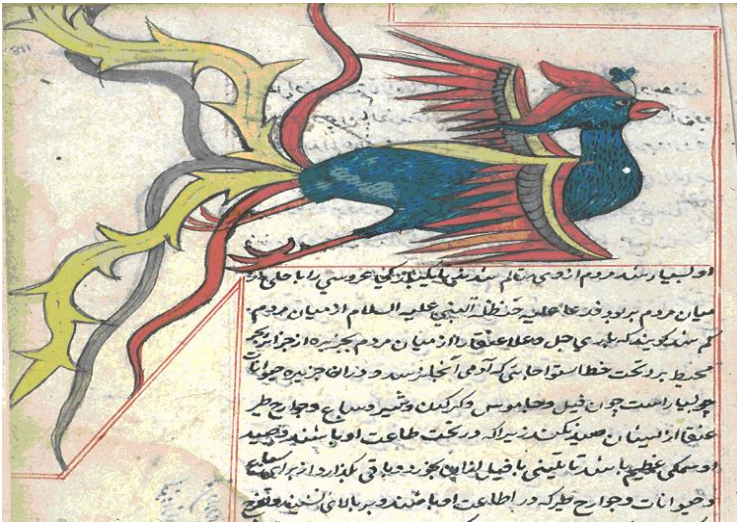 او بسیار شد مردم از وی متالم شدند تا یکبار عروسی را با حلی از
میان مردم بربود فدعا علیه حنظلة النبی علیه السلام از میان مردم
کم شد کویند که باری جل و علا عنقا را از میان مردم بجزیره از جزایر بحر
محیط برد تحت خط استوا جایی که آدمی آنجا نرسد و در ان جزیره حیوانات
بسیار است چون فیل و جاموس و کرکدن و شیر و سباع و جوارح طیر
عنقا از ایشان صید نکند زیرا که در تحت طاعت او باشند و صید
او سمکی عظیم باشد یا تنینی یا فیل از این بخورد و باقی بکذارد از برای سباع
و حیوانات و جوارح طیر که در اطاعت او باشند و بر بالای نشیند و تفرج